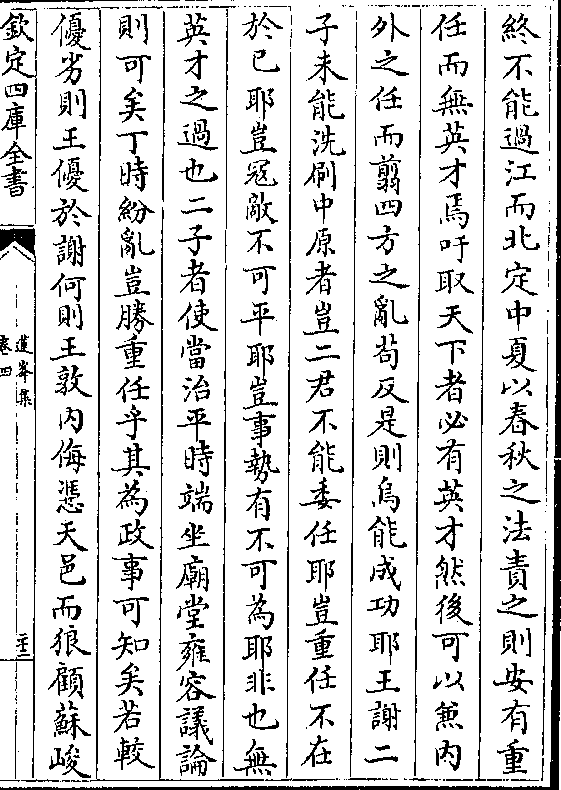 終不能過江而北定中夏以春秋之法責之則安有重
任而無英才焉吁取天下者必有英才然後可以兼内
外之任而翦四方之亂苟反是則烏能成功耶王謝二
子未能洗刷中原者豈二君不能委任耶豈重任不在
於已耶豈冦敵不可平耶豈事勢有不可為耶非也無
英才之過也二子者使當治平時端坐廟堂雍容議論
則可矣丁時紛亂豈勝重任乎其為政事可知矣若較
優劣則王優於謝何則王敦内侮憑天邑而狼顧蘇峻
欽定四庫全書
蓮峯集
卷四
二十二